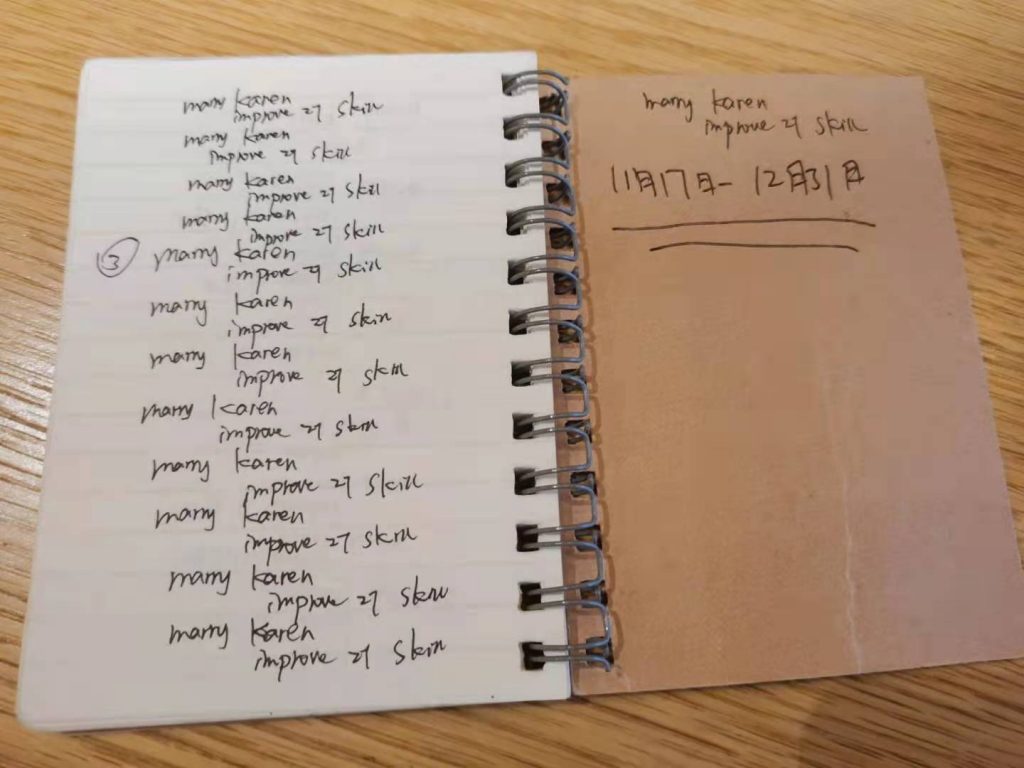 marry karen
improve skill
marry karen
improve skill
marry karen
improve skill
marry karen
improve skill
③ marry karen
improve skill
marry karen
improve skill
marry karen
improve skill
marry karen
improve skill
marry karen
improve skill
marry karen
improve skill
marry karen
improve skill
marry karen
improve skill
marry karen
improve skill
11月17日- 12月31日